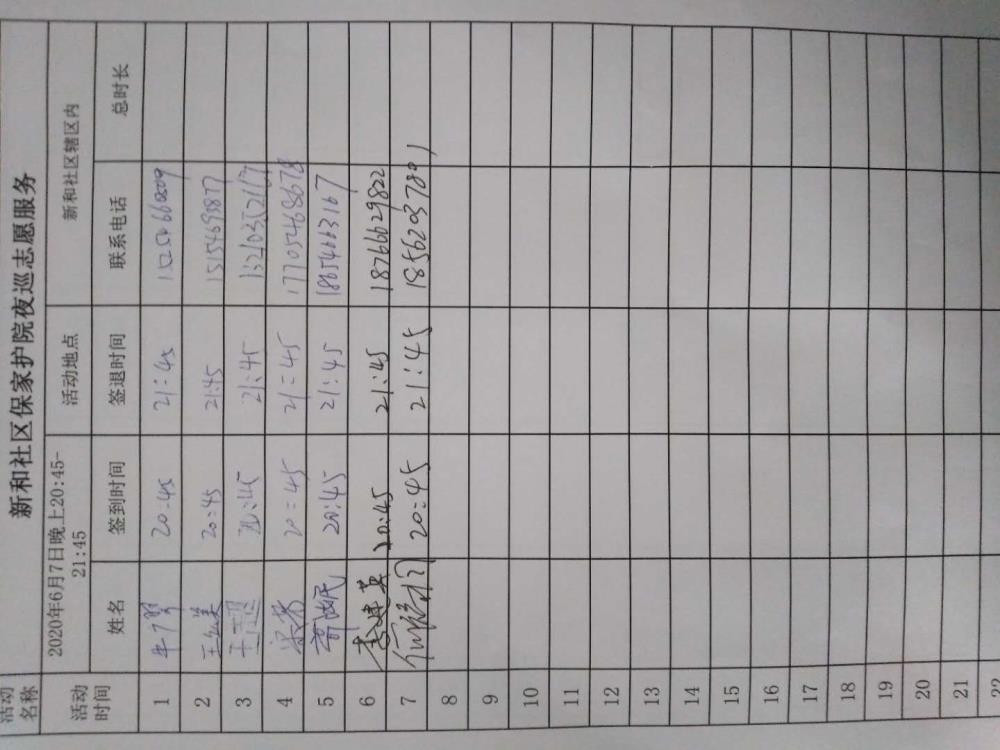 活动名称 新和社区保家护院夜巡志愿服务
活动时间 2020年6月7日晚上20:45-21:45 活动地点 新和社区辖区内
姓名 签到时间 签退时间 联系电话 总时长
1 20:45 21:45
2 20:45 21:45 15154693877
3 20:45 21:45
4 20:45 21:45 17705468678
5 20:45 21:45
6 李建英 20:45 21:45 18766629822
7 20:45 21:45 18562037891
8
9
10
11
12
13
14
15
16
17
18
19
20
21
22